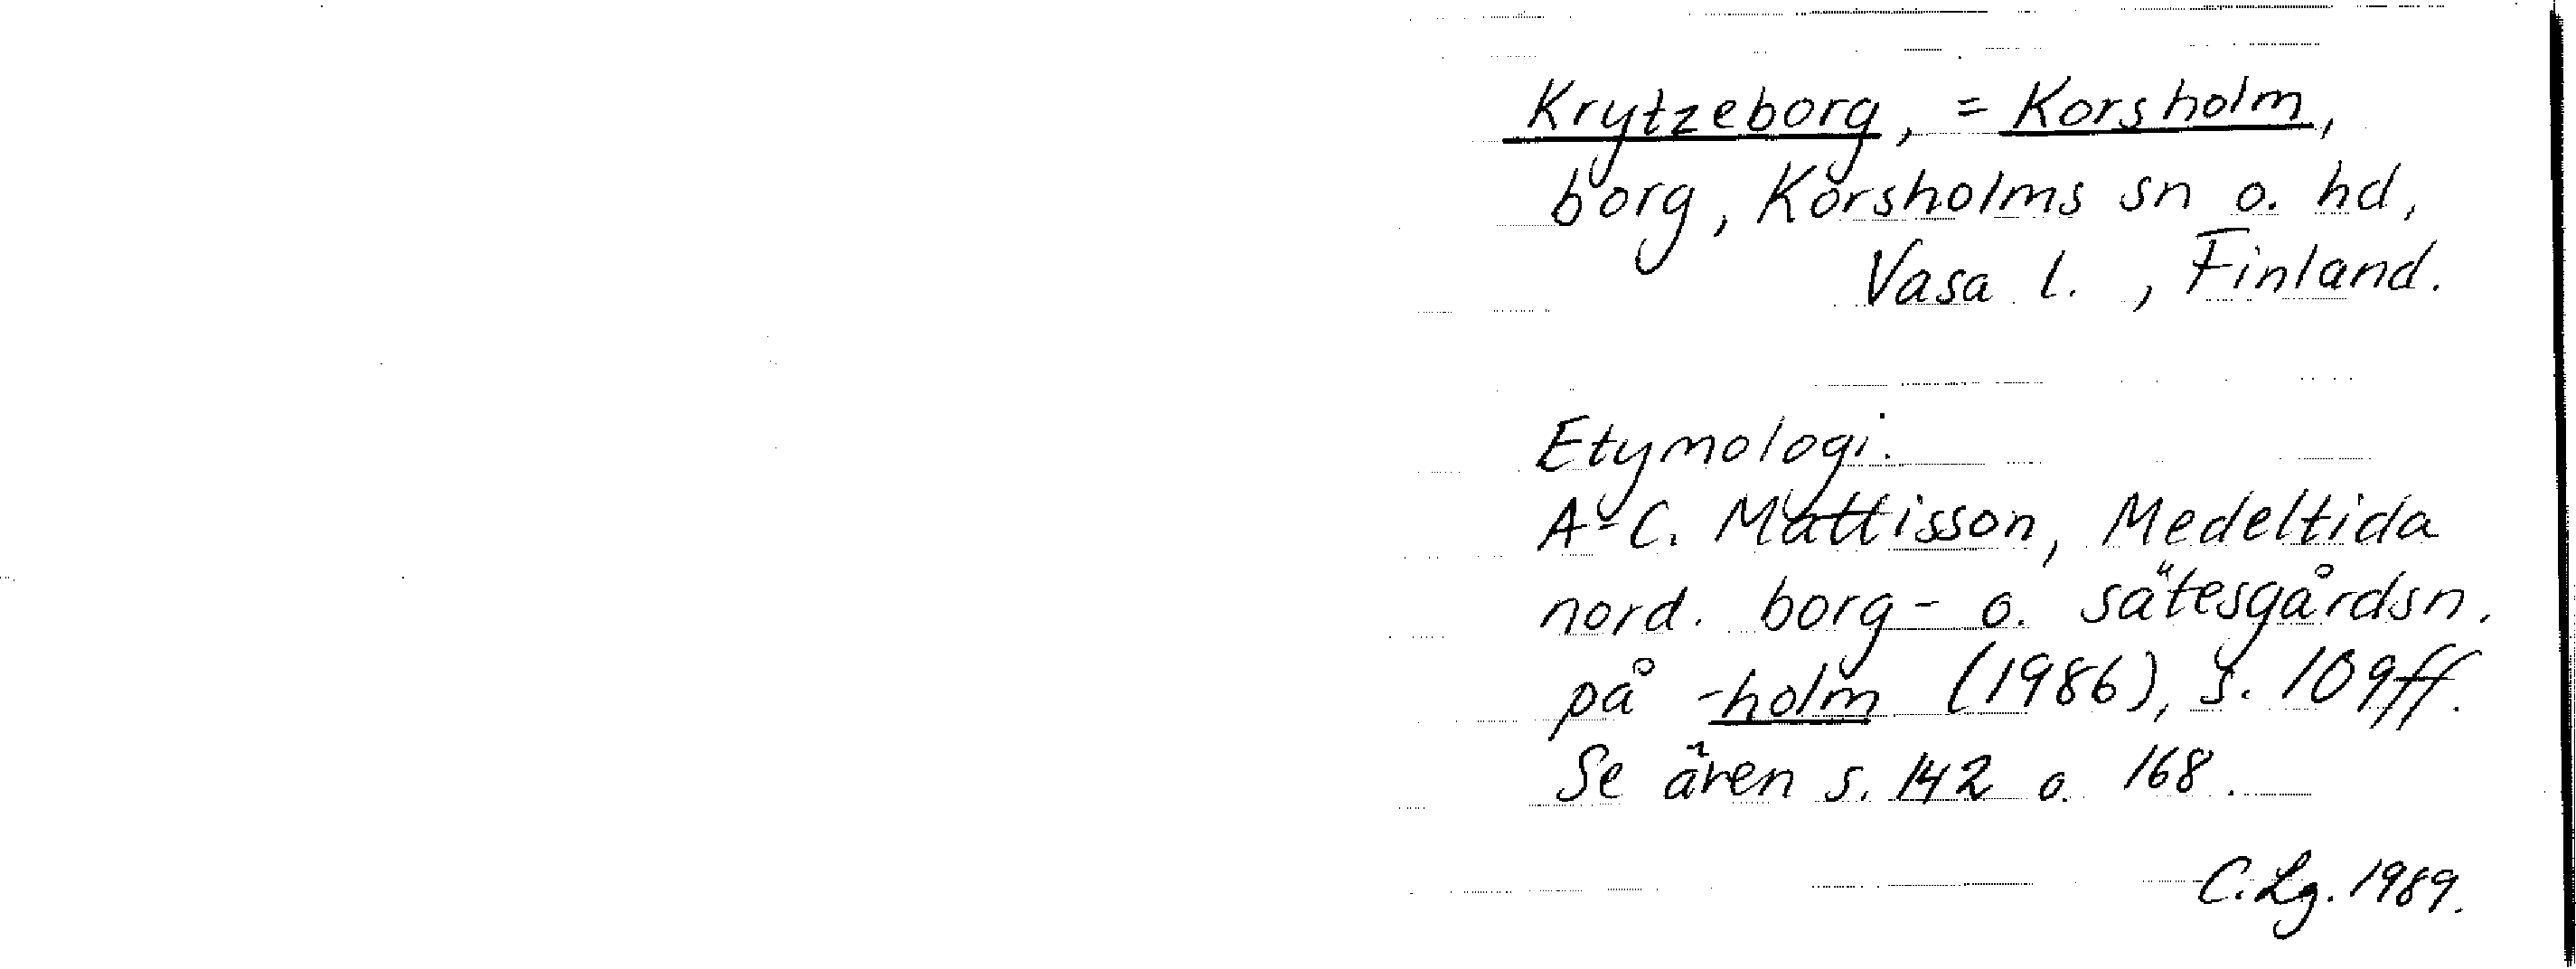 Krytzeborg, = Korsholm,
borg, Korsholms sn o. hd,
Vasa l., Finland.
Etymologi.
A-C. Mattisson, Medeltida
nord. borg- o. sätesgårdsn.
på -holm (1986), s. 109ff.
Se även s. 142 o. 168.
C. Lg. 1989.